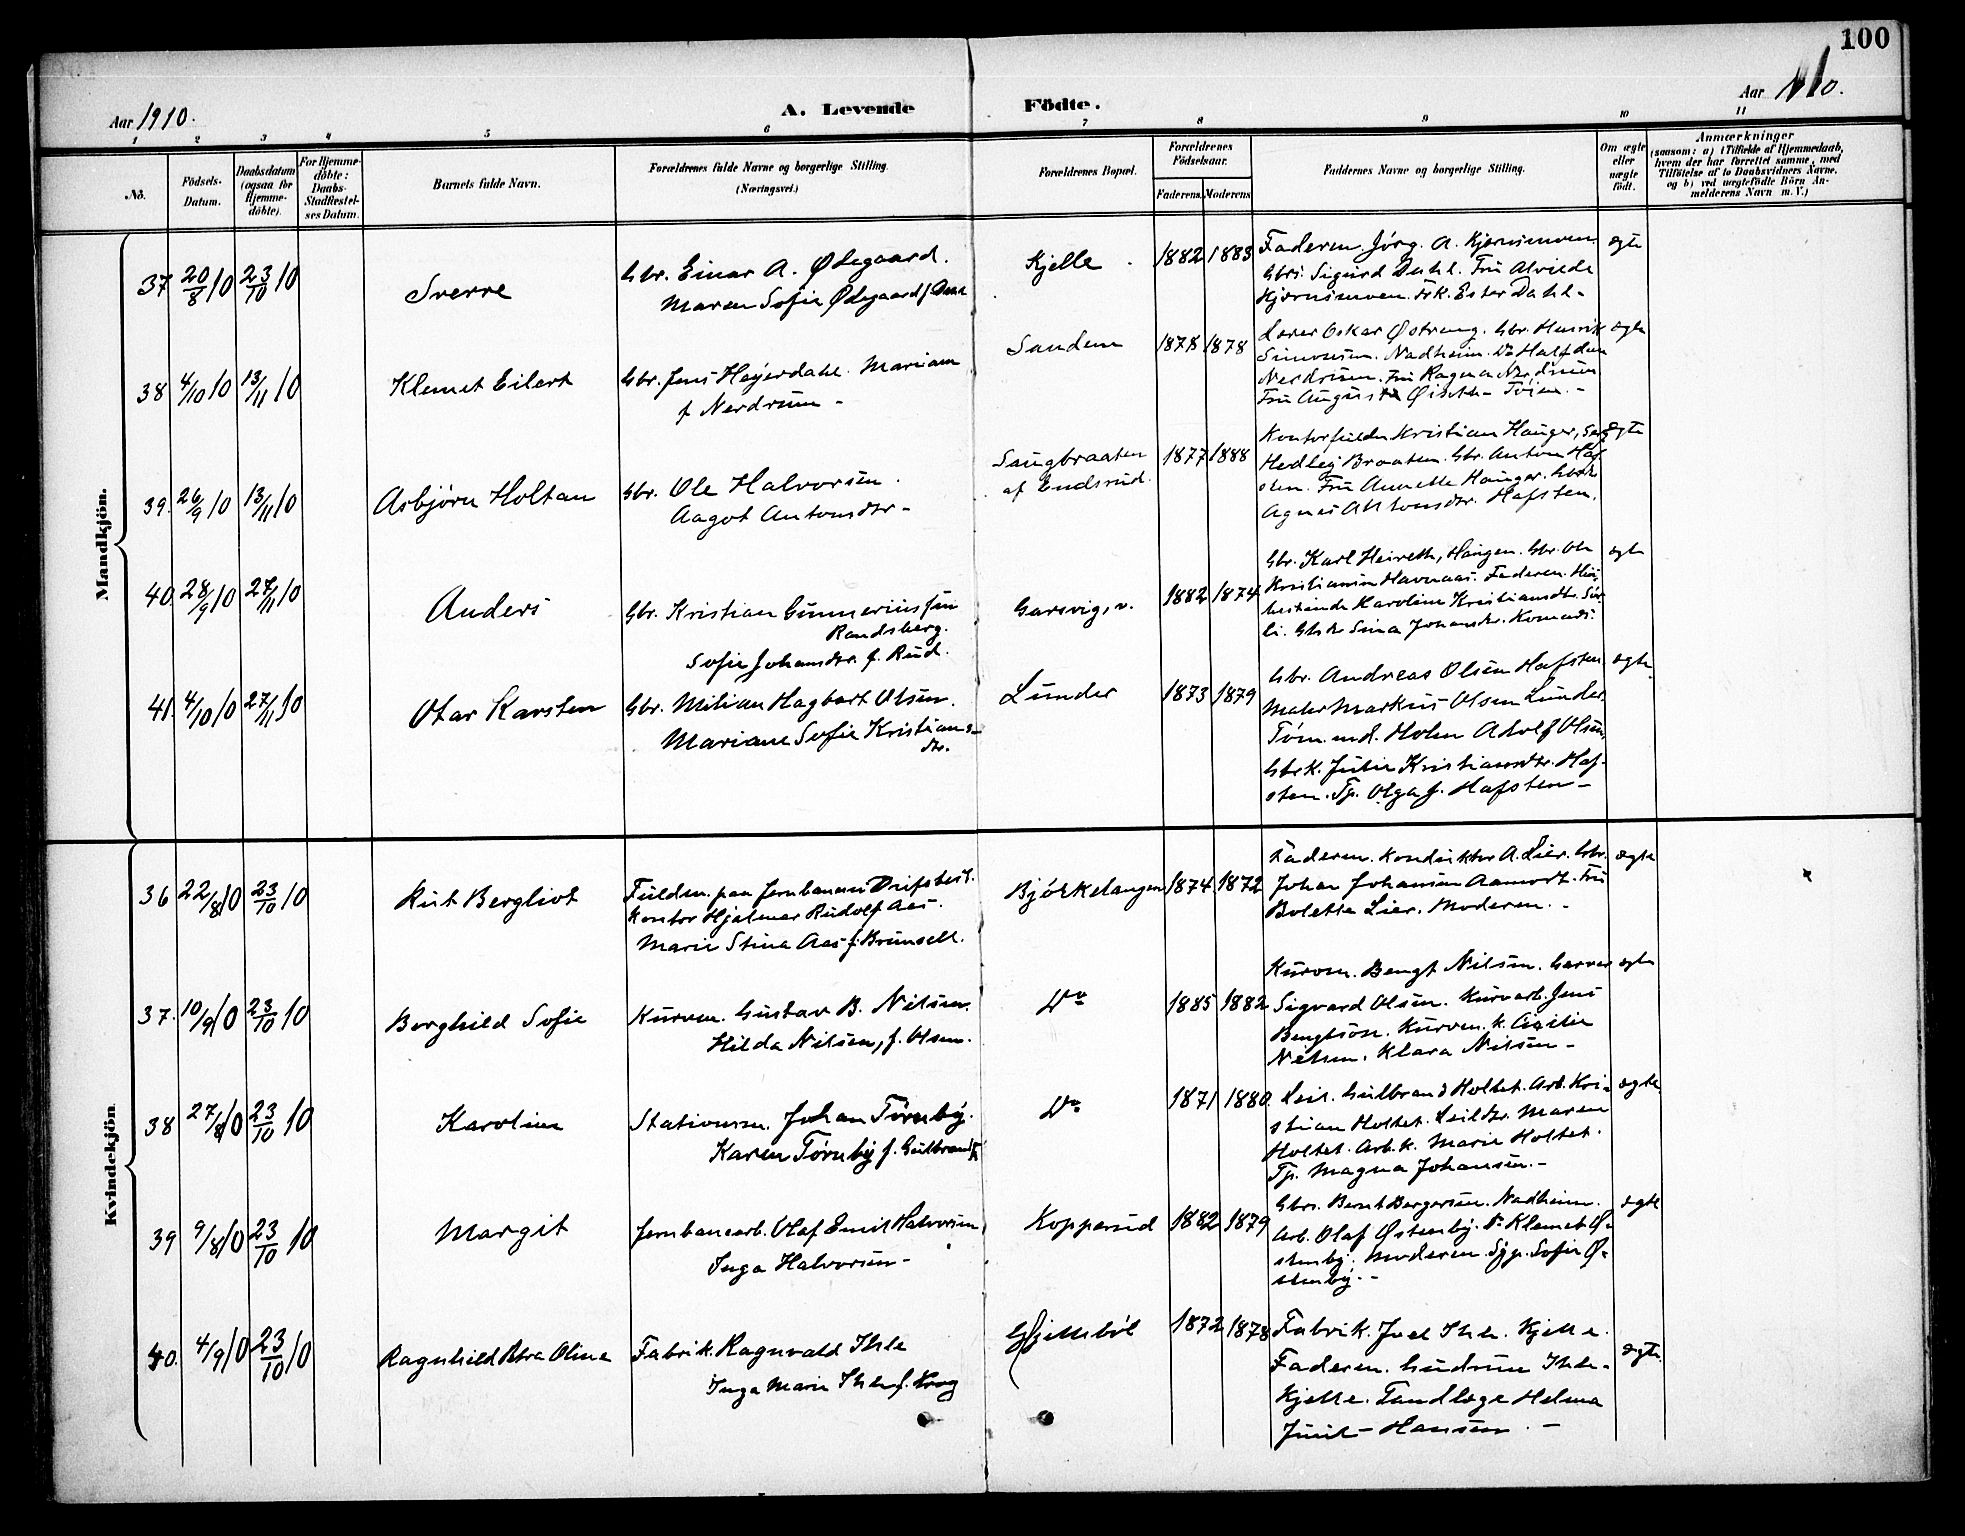 100
Aar 1910.
A. Levende
Födte.
Aar 1910.
1 2 3 4 5 6 7 8 9 10 11
No.
Födsels-
Datum.
Daabsdatum
(ogsaa for
Hjemme-
döbte).
For Hjemme-
döbte:
Daabs-
Stadfæstel-
ses Datum.
Barnets fulde Navn.
Forældrenes fulde Navne og borgerlige Stilling.
(Næringsvei.)
Forældrenes Bopæl.
Forældrenes
Födselsaar.
Faderens. Moderens
Faddernes Navne og borgerlige Stilling.
Om ægte
eller
uægte
født.
Anmærkninger
(saasom: a) i Tilfælde af Hjemmedaab,
hvem der har forrettet samme, med
Tilföielse af to Daabsvidners Navne,
og b) ved uægtefödte Börn An-
melderens Navn m. V.)
Mandkjön.
37 20/8 10 23/10 10
Sverre
Gbr. Einar A. Ødegaard.
Maren Sofie Ødegaard f.
Kjelle
1882 1883
Faderen. Jörg. A. Kjernsmoen.
Gbrs. Sigurd Dahl. Fru Alvilde
Kjernsmoen. Frk. Ester Dahl-
ægte
38 4/10 10 13/11 10
Klemet Eilert
Gbr. Jens Heyerdahl. Mariam
f. Nerdrum -
Sandem
1878 1878
Lærer Oskar Østreng. Gbr. Henrik
Simonsen. Nadheim. Do Halfdan
Nerdrum. Fru Ragna Nerdrum
Fru Augusta Tøien. -
ægte
39. 26/9 10 13/11 10
Asbjörn Holtan
Gbr. Ole Halvorsen.
Aagot Antonsdtr -
Saugbraaten
af Endsrud.
1877 1888
Kontorfuldm Kristian Hauger,
Hedley Braaten. Gbr. Anton Haf
sten. Fru Annette Hauger.
Agnes Antonsdtr. Hafsten.
ægte
40. 28/9 10 27/11 10
Anders
Gbr. Kristian Gunneriussen
Randsberg.
Sofie Johansdtr. f. Rud.
Garsvig, v.
1882 1874
Gbr. Karl Heireth, Haugen. Gbr. Ole
Kristiansen Havnaas. Faderen. Hus
bestinde Karoline Kristiansdtr.
li. Gbdtr Sina Johansdtr. Komnæs.
ægte
41. 4/10 10 27/11 10
Otar Karsten
Gbr. Milian Hagbart Olsen.
Mariane Sofie Kristians-
dtr.
Lunder
1873 1879
Gbr. Andreas Olsen Hafsten.
Maler Markus Olsen Lunder.
Töm.md. Holm Adolf Olsen,
Gbrk. Julie Kristiansdtr. Haf-
sten. Tp. Olga J. Hafsten -
ægte
Kvindekjön
36 22/8 10 23/10 10
Rut Bergliot
Fuldm. paa Jernbanens Driftsbest.
kontor Hjalmar Rudolf Aas.
Marie Stina Aas f. Brunsell.
Björkelangen
1874 1872
Faderen. Konduktör A. Lier. Gbr.
Johan Johansen Aamodt. Fru
Bolette Lier. Moderen. -
ægte
37. 10/9 10 23/10 10
Borghild Sofie
Kurvm. Gustav B. Nilsen.
Hilda Nilsen, f. Olsen.
Do
1885 1882
Kurvm. Bengt Nilsen. Garver
Sigvard Olsen. Kurvarb. Jens
Bengtsön. Kurvm. k. Cecilie
Nilsen. Klara Nilsen -
ægte
38 27/8 10 23/10 10
Karoline
Stationsm. Johan Törnby.
Karen Törnby f. Gulbrands
Do
1871 1880
Leil. Gulbrand Holtet. Arb. Kri-
stian Holtet. Leildtr. Maren
Holtet. Arb.k. Marie Holtet.
Tp. Magna Johansen. -
ægte
39 9/8 10 23/10 10
Margit
Jernbanearb. Olaf Emil Halvorsen
Inga Halvorsen -
Kopperud
1882 1879
Gbrs. Bernt Bergersen. Nadheim.
Arb. Olaf Østenby. Do Klemet Ø-
stenby. Moderen. Syp. Sofie Ø-
stenby. -
ægte
40. 4/9 10 23/10 10
Ragnhild Petra Oline
Fabrik. Ragnvald Ihle
Inga Marie Ihle f. Krog
Gjellebøl
1872 1878
Fabrik. Joel Ihle. Kjelle.
Faderen. Gudrun Ihle-
Kjelle. Tandlæge Helma
Juul-Hansen. -
ægte.